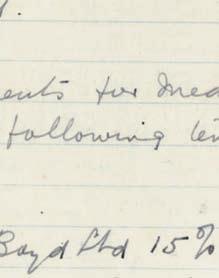 ents for Mea
following
Boyd Ltd 15%